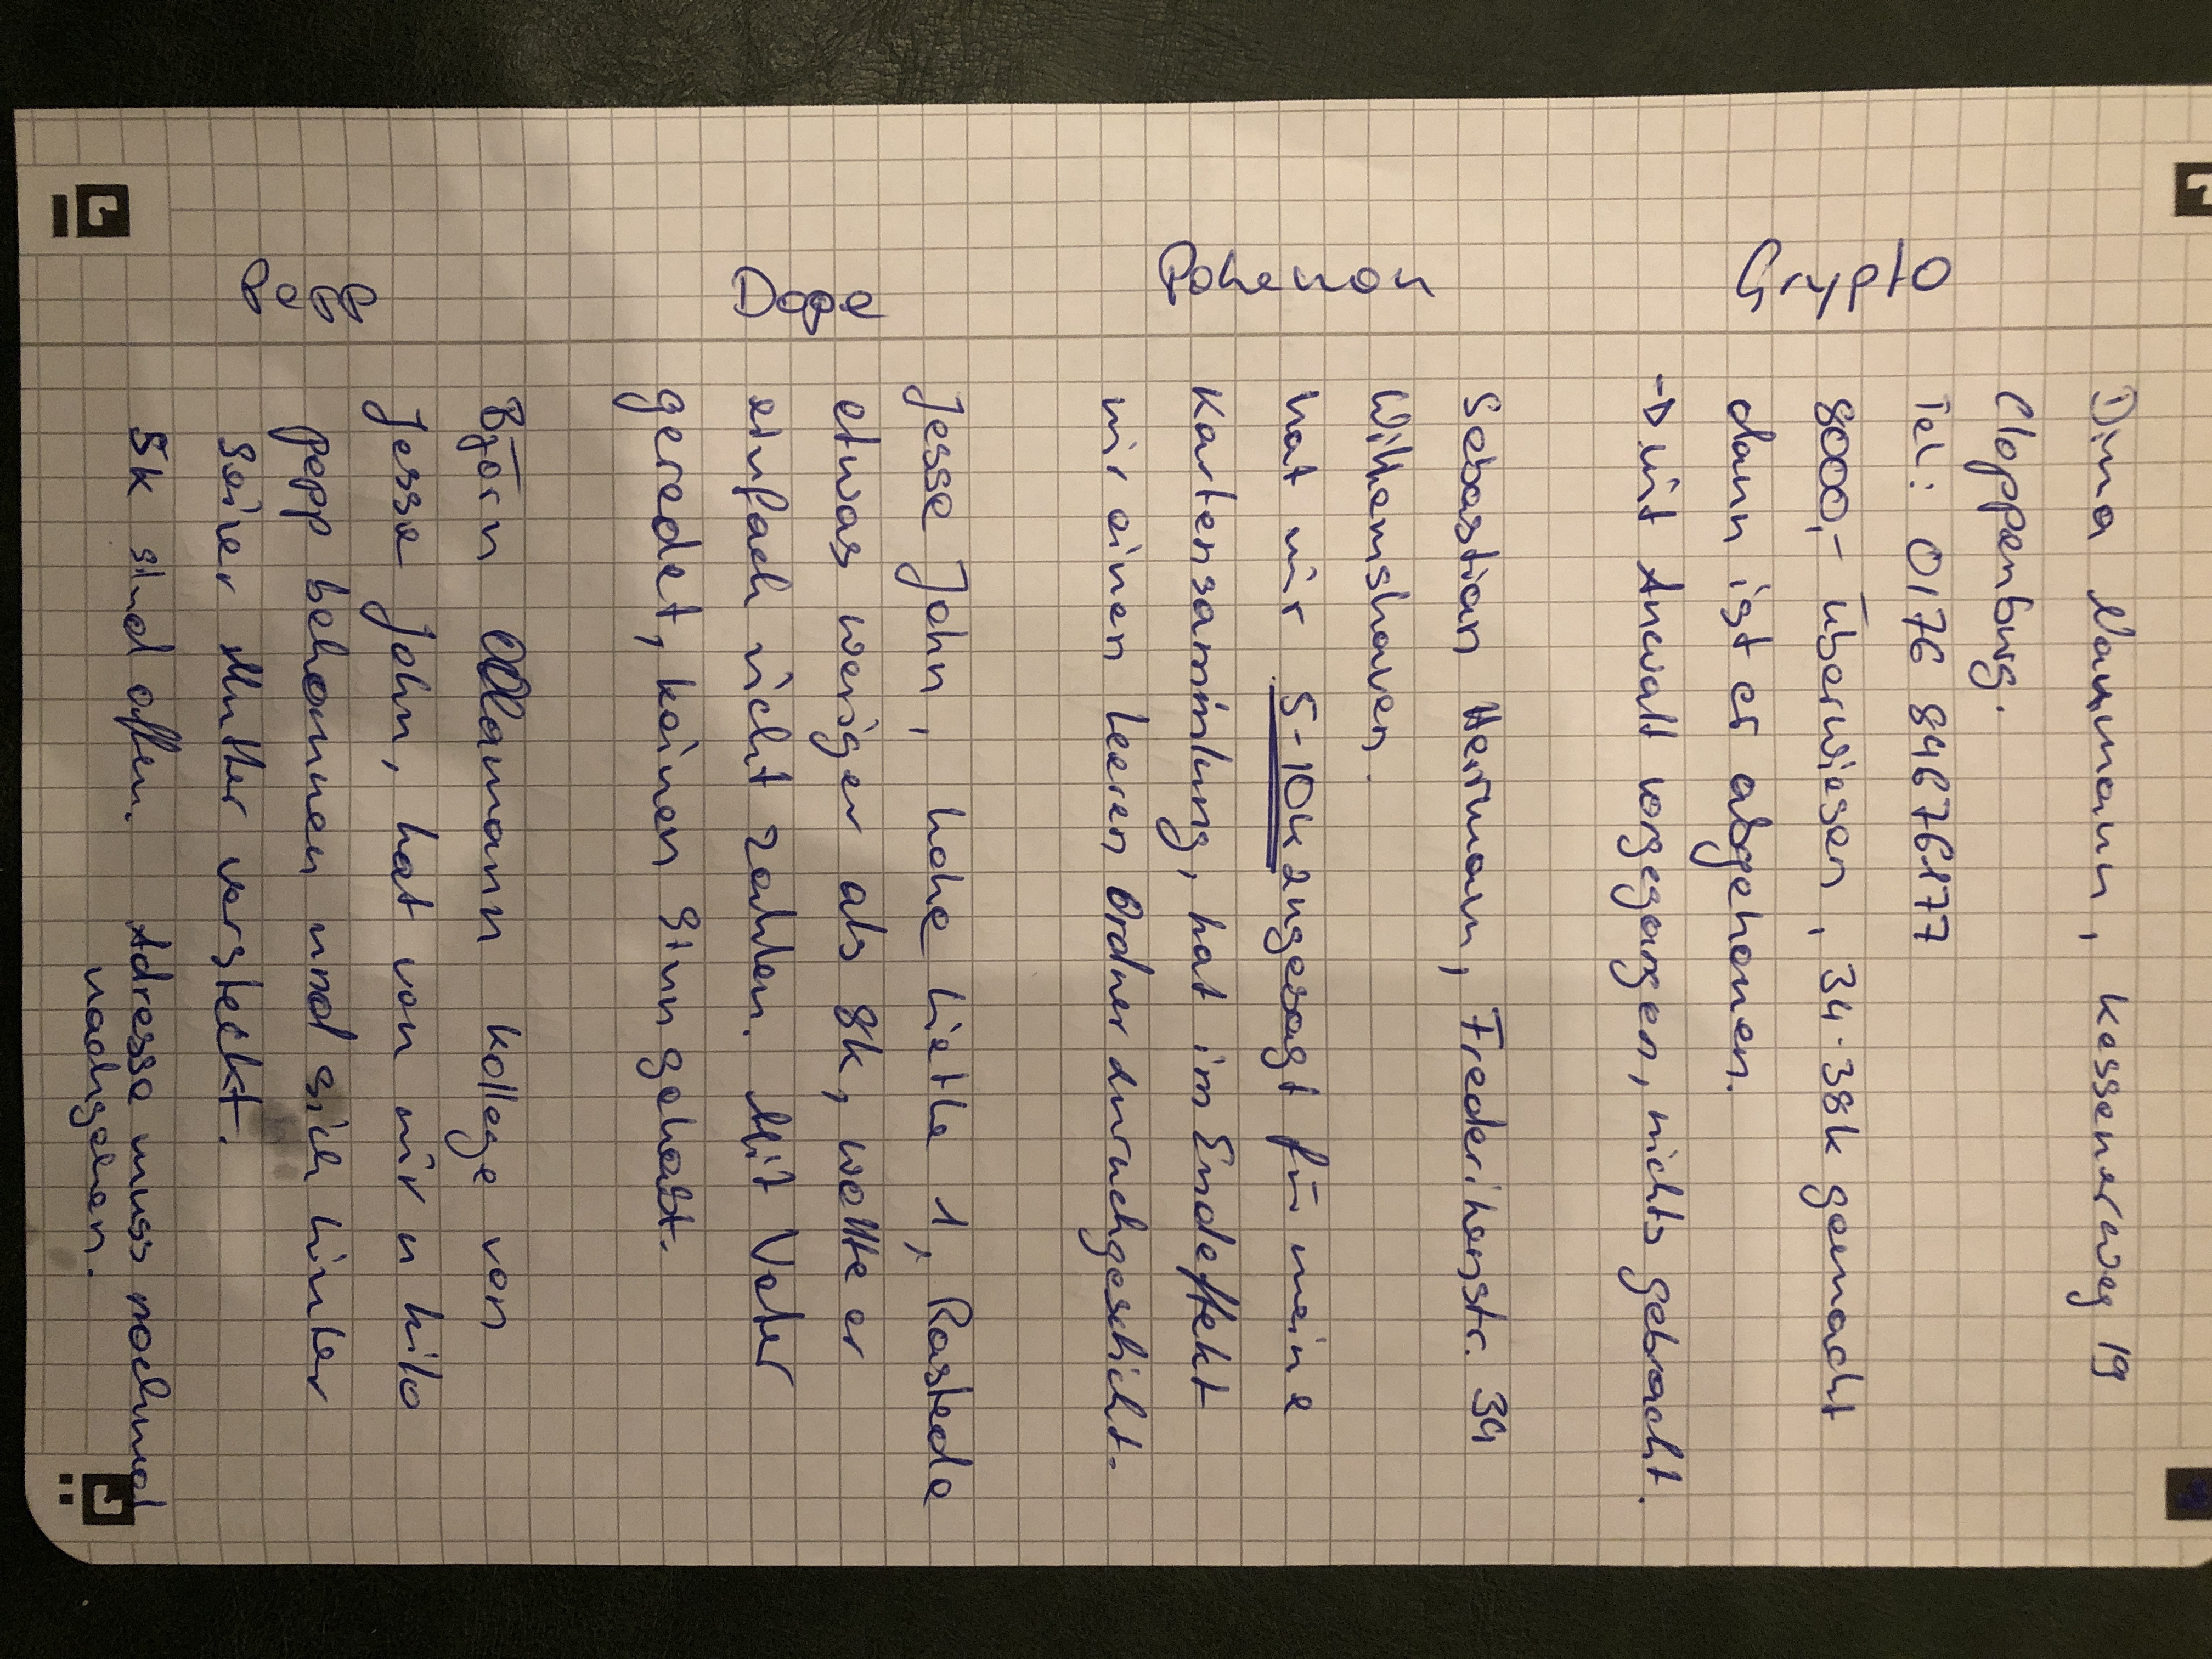 Dima Naumann, Kessenerweg 19
Cloppenburg.
Tel: 0176 84676177
Crypto 8000,- überwiesen, 34-38k gemacht
dann ist er abgehauen.
-> Mit Anwalt vorgegangen, nichts gebracht.
Sebastian Hermann, Frederikenstr. 34
Wilhemshaven.
Pokemon hat mir 5-10k zugesagt für meine
Kartensammlung, hat im Endeffekt
mir einen leeren Ordner zurückgeschickt.
Jesse John, hohe Lieth 1, Rastede
Dope etwas weniger als 8k, wollte er
einfach nicht zahlen. Mit Vater
geredet, keinen sinn gehabt.
Björn Ollamann kollege von
Jesse John, hat von mir n kilo
Pepp bekommen und sich hinter
seiner Mutter versteckt.
5k sind offen. Adresse muss nochmal
nachgehen.